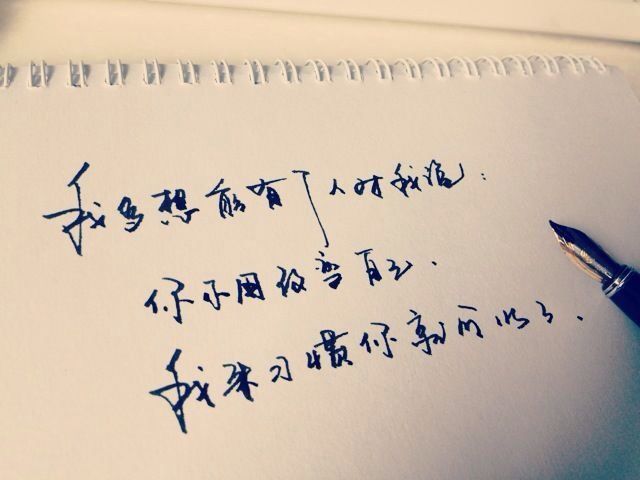 我多想能有个人对我说：
你不用改变自己．
我来习惯你就可以了．